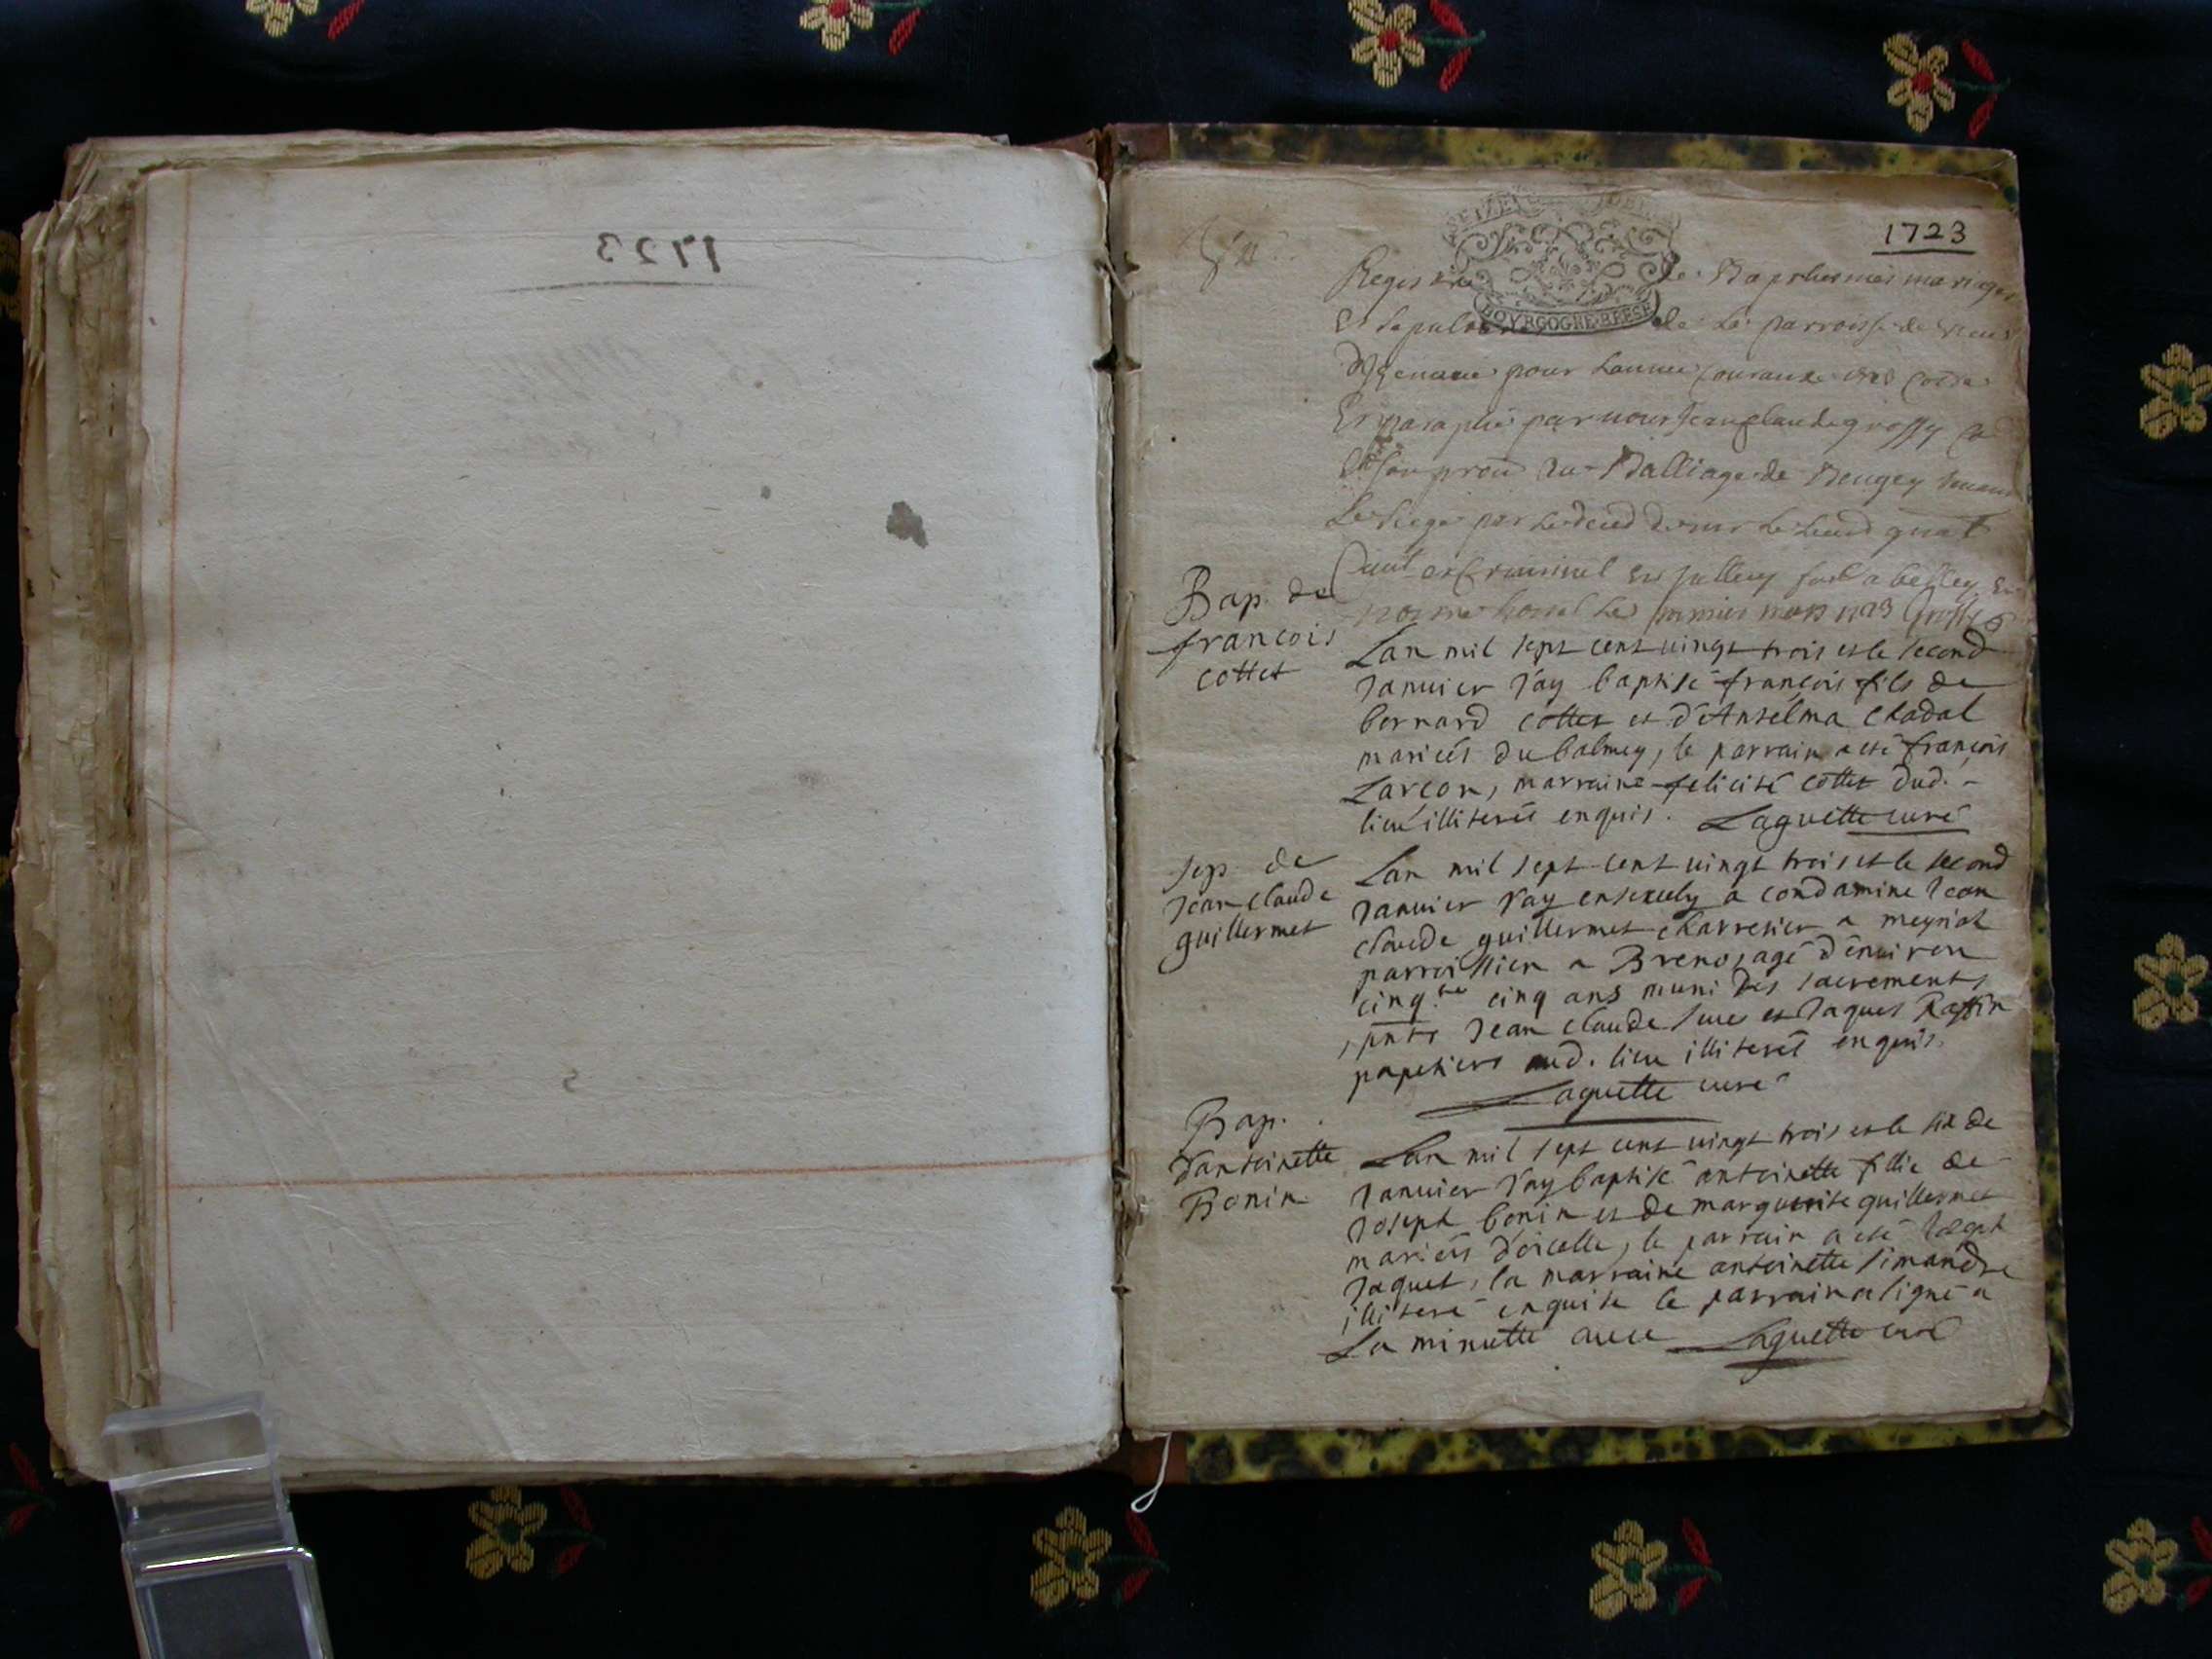 1723
1723
BOVRGOGNE BRESSE
Registre de Baptesmes mariages
Et sepultures de la parroisse de vieux
pour Lannee Courante 1723
Et paraphé par nous Jean Claude grossy
du Balliage de Beugey
Le siege par
Criminel a belley
Le premier mars 1723 Grossy
Bap. de
francois
cottet
Lan mil sept cent vingt trois et le second
Januier J'ay baptisé françois fils de
bernard cottet et d'Anselma Chadal
mariés du balmey, le parrain a été françois
Larcon, marraine felicité cottet dud.
lieu illiterés enquis. Laguette curé
Sep. de
Jean claude
guillermet
Lan mil sept cent vingt trois et le second
Januier J'ay ensevely a condamine Jean
claude guillermet charretier a meyriat
parroissien a Breno, agé d'enuiron
cinq.te cinq ans muni des sacrements
pnts Jean claude et Jaques Raffin
papetiers aud. lieu illiterés enquis.
Laguette curé
Bap.
d'antoinette
Bonin
Lan mil sept cent vingt trois et le six de
Januier J'ay baptisé antoinette fillie de
Joseph bonin et de marguerite guillermet
mariés d'oiselle, le parrain a été Joseph
Jaquet, la marraine antoinette simandre
illiteré enquise le parrain a signé a
La minutte auec Laguette curé